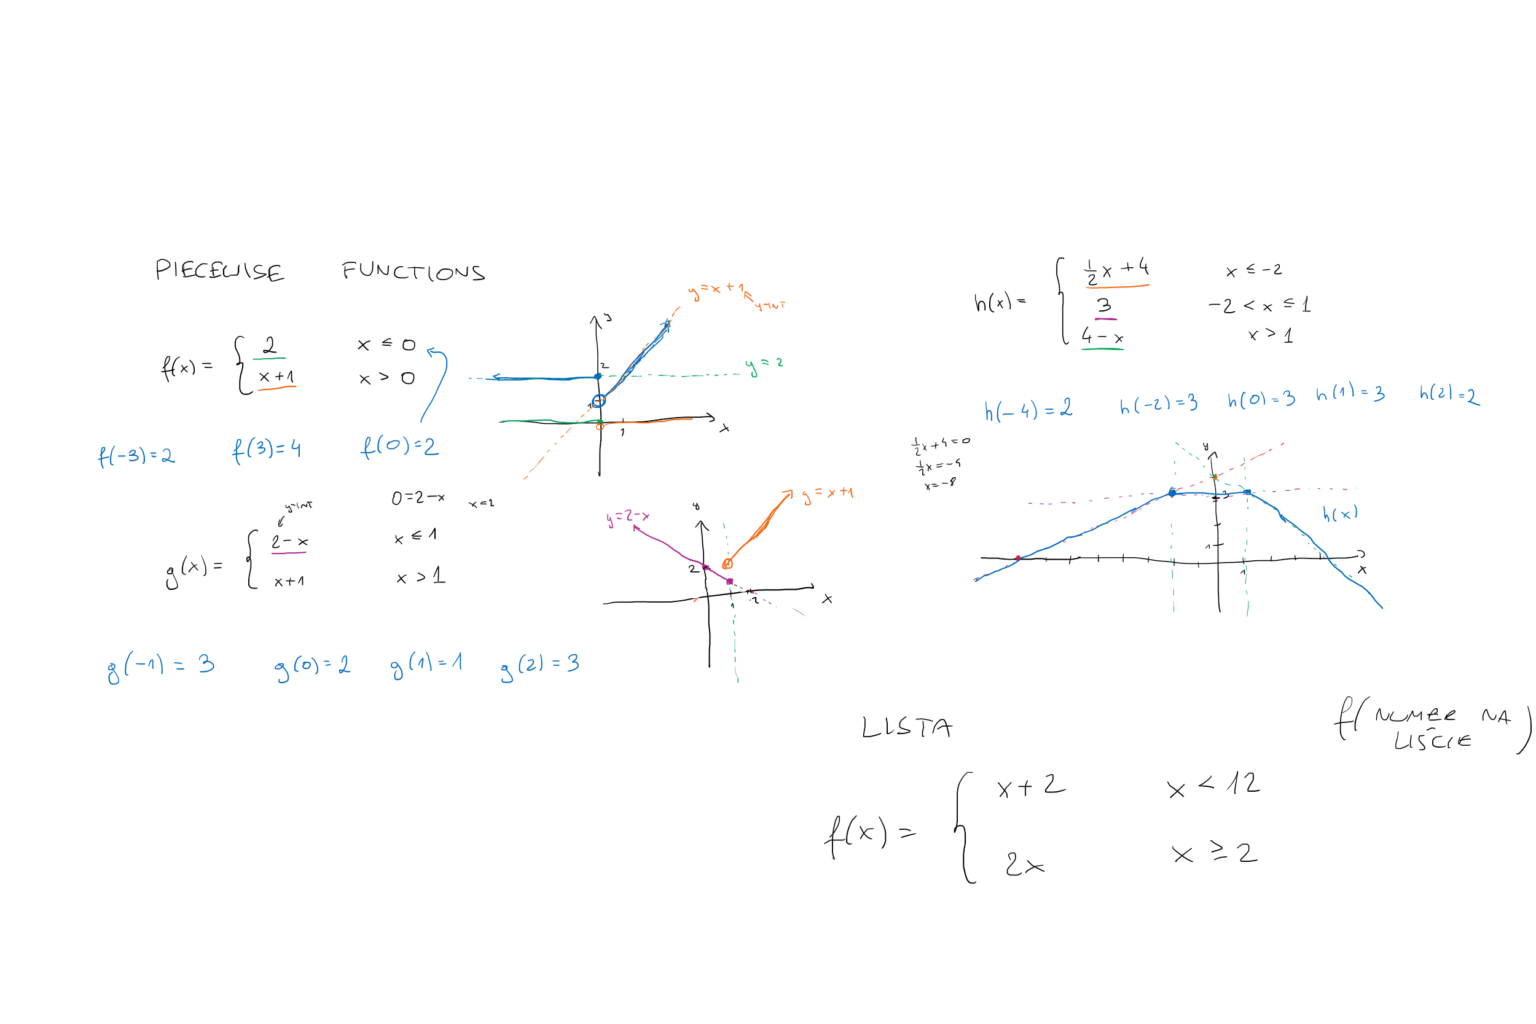 PIECEWISE FUNCTIONS
f(x) = { 2 x ≤ 0
x+1 x > 0
f(-3)=2 f(3)=4 f(0)=2
y=x+1
y-INT
y
2
y=2
1
1
x
y-INT
0=2-x x=2
g(x) = { 2-x x ≤ 1
x+1 x > 1
g(-1) = 3 g(0)=2 g(1)=1 g(2)=3
y=2-x
y
y=x+1
2
1
2
x
h(x) = { ½x+4 x ≤ -2
3 -2 < x ≤ 1
4-x x > 1
h(-4)=2 h(-2)=3 h(0)=3 h(1)=3 h(2)=2
½x+4=0
½x=-4
x=-8
y
3
h(x)
1
1
x
LISTA
f(NUMER NA
LIŚCIE)
f(x) = { x+2 x < 12
2x x ≥ 2